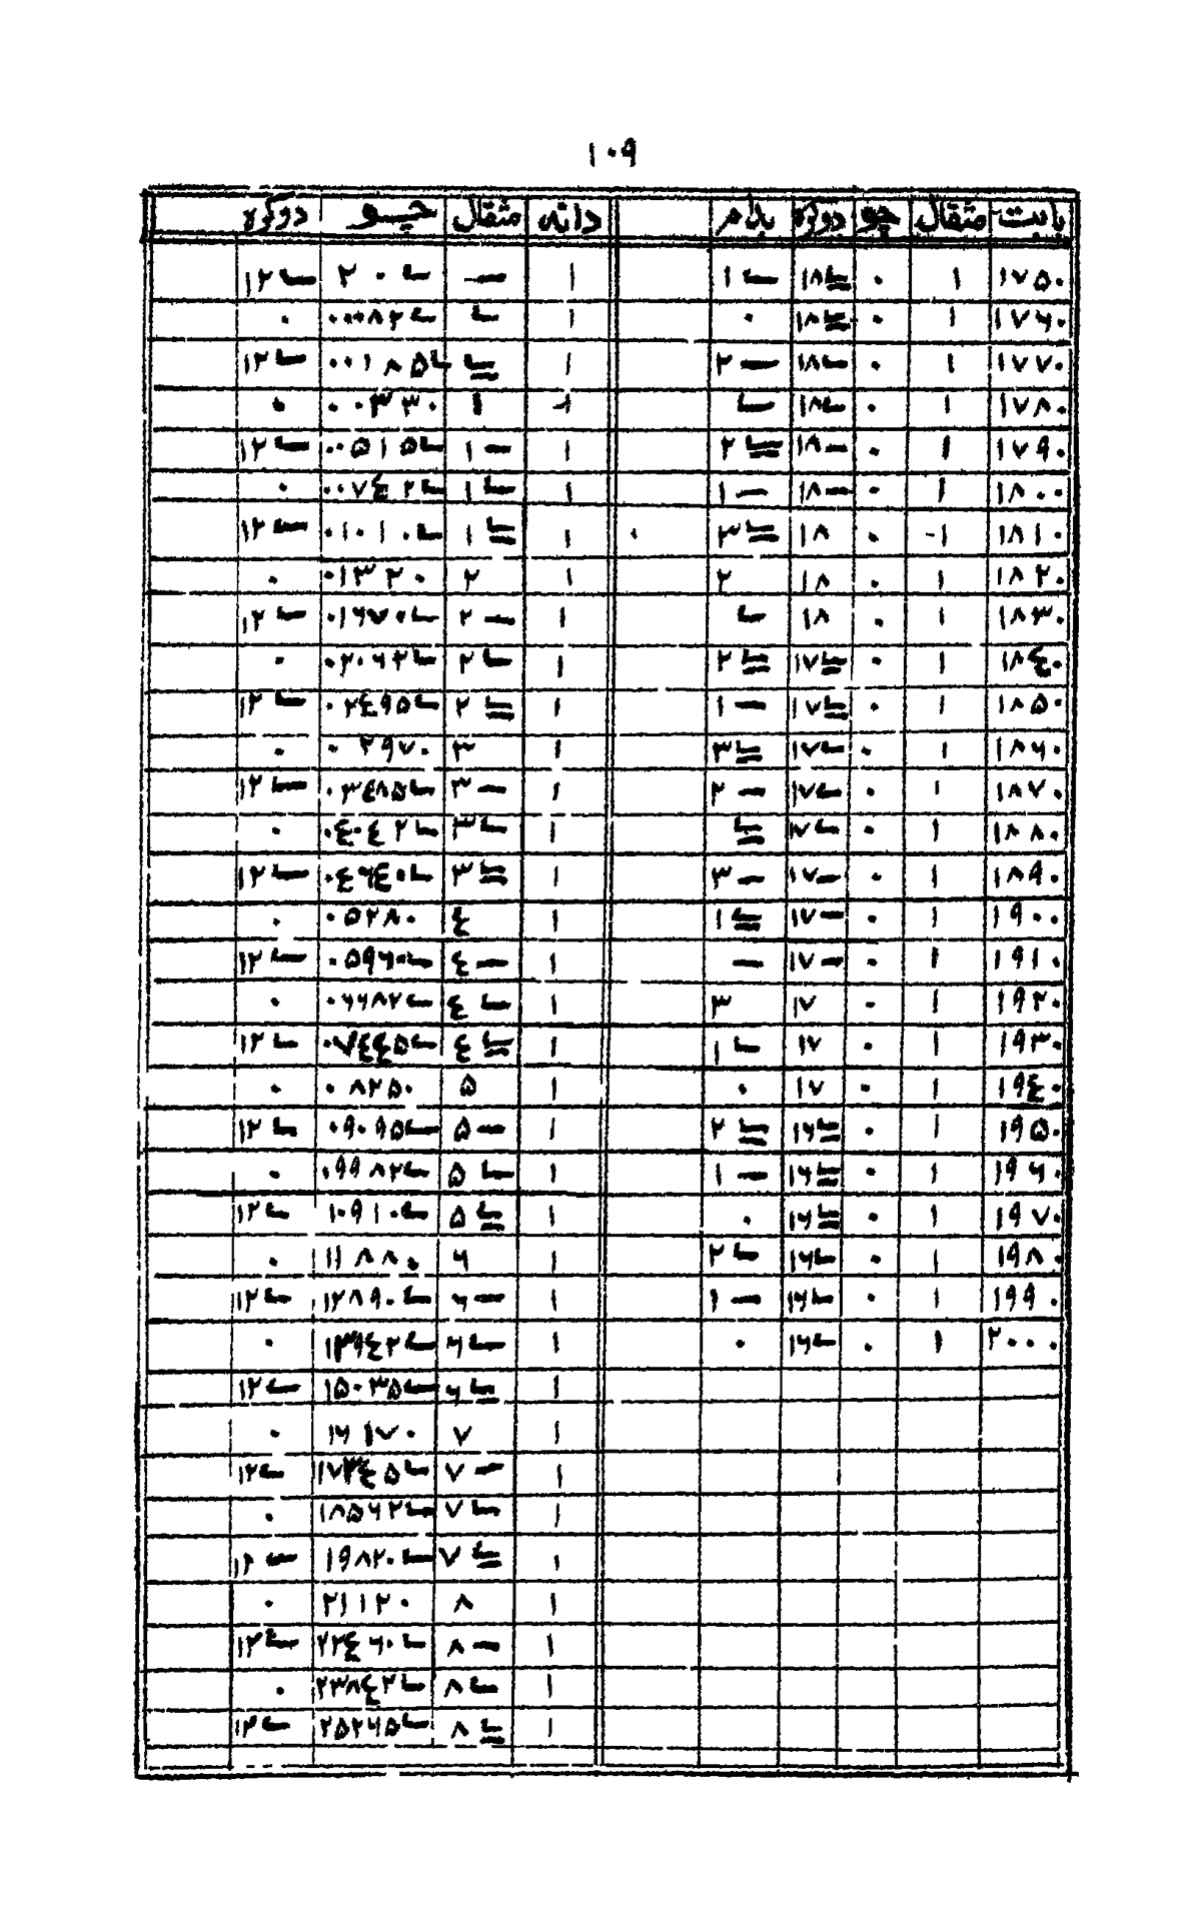 ١٠٩
بابت مثقال چو دوكره بدام دانه مثقال چو دوكره
١٧٥٠ ١ ٠ ١٨ ١ ١ ٢٠ ١٢
١٧٦٠ ١ ٠ ١٨ ٠ ١ ٠٠٠٨٢ ٠
١٧٧٠ ١ ٠ ١٨ ٢ ١ ٠٠١٨٥ ١٢
١٧٨٠ ١ ٠ ١٨ ١ ١ ٠٠٣٣٠ ٠
١٧٩٠ ١ ٠ ١٨ ٢ ١ ١ ٠٠٥١٥ ١٢
١٨٠٠ ١ ٠ ١٨ ١ ١ ١ ٠٠٧٤٢ ٠
١٨١٠ ١ ٠ ١٨ ٣ ١ ١ ٠١٠١٠ ١٢
١٨٢٠ ١ ٠ ١٨ ٢ ١ ٢ ٠١٣٢٠ ٠
١٨٣٠ ١ ٠ ١٨ ١ ٢ ٠١٦٧٠ ١٢
١٨٤٠ ١ ٠ ١٧ ٢ ١ ٢ ٠٢٠٦٢ ٠
١٨٥٠ ١ ٠ ١٧ ١ ١ ٢ ٠٢٤٩٥ ١٢
١٨٦٠ ١ ٠ ١٧ ٣ ١ ٣ ٠٢٩٧٠ ٠
١٨٧٠ ١ ٠ ١٧ ٢ ١ ٣ ٠٣٤٨٥ ١٢
١٨٨٠ ١ ٠ ١٧ ١ ٣ ٠٤٠٤٢ ٠
١٨٩٠ ١ ٠ ١٧ ٣ ١ ٣ ٠٤٦٤٠ ١٢
١٩٠٠ ١ ٠ ١٧ ١ ١ ٤ ٠٥٢٨٠ ٠
١٩١٠ ١ ٠ ١٧ ١ ٤ ٠٥٩٦٠ ١٢
١٩٢٠ ١ ٠ ١٧ ٣ ١ ٤ ٠٦٦٨٢ ٠
١٩٣٠ ١ ٠ ١٧ ١ ١ ٤ ٠٧٤٤٥ ١٢
١٩٤٠ ١ ٠ ١٧ ٠ ١ ٥ ٠٨٢٥٠ ٠
١٩٥٠ ١ ٠ ١٦ ٢ ١ ٥ ٠٩٠٩٥ ١٢
١٩٦٠ ١ ٠ ١٦ ١ ١ ٥ ٠٩٩٨٢ ٠
١٩٧٠ ١ ٠ ١٦ ٠ ١ ٥ ١٠٩١٠ ١٢
١٩٨٠ ١ ٠ ١٦ ٢ ١ ٦ ١١٨٨٠ ٠
١٩٩٠ ١ ٠ ١٦ ١ ١ ٦ ١٢٨٩٠ ١٢
٢٠٠٠ ١ ٠ ١٦ ٠ ١ ٦ ١٣٩٤٢ ٠
١ ٦ ١٥٠٣٥ ١٢
١ ٧ ١٦١٧٠ ٠
١ ٧ ١٧٣٤٥ ١٢
١ ٧ ١٨٥٦٢ ٠
١ ٧ ١٩٨٢٠ ١٢
١ ٨ ٢١١٢٠ ٠
١ ٨ ٢٢٤٦٠ ١٢
١ ٨ ٢٣٨٤٢ ٠
١ ٨ ٢٥٢٦٥ ١٢